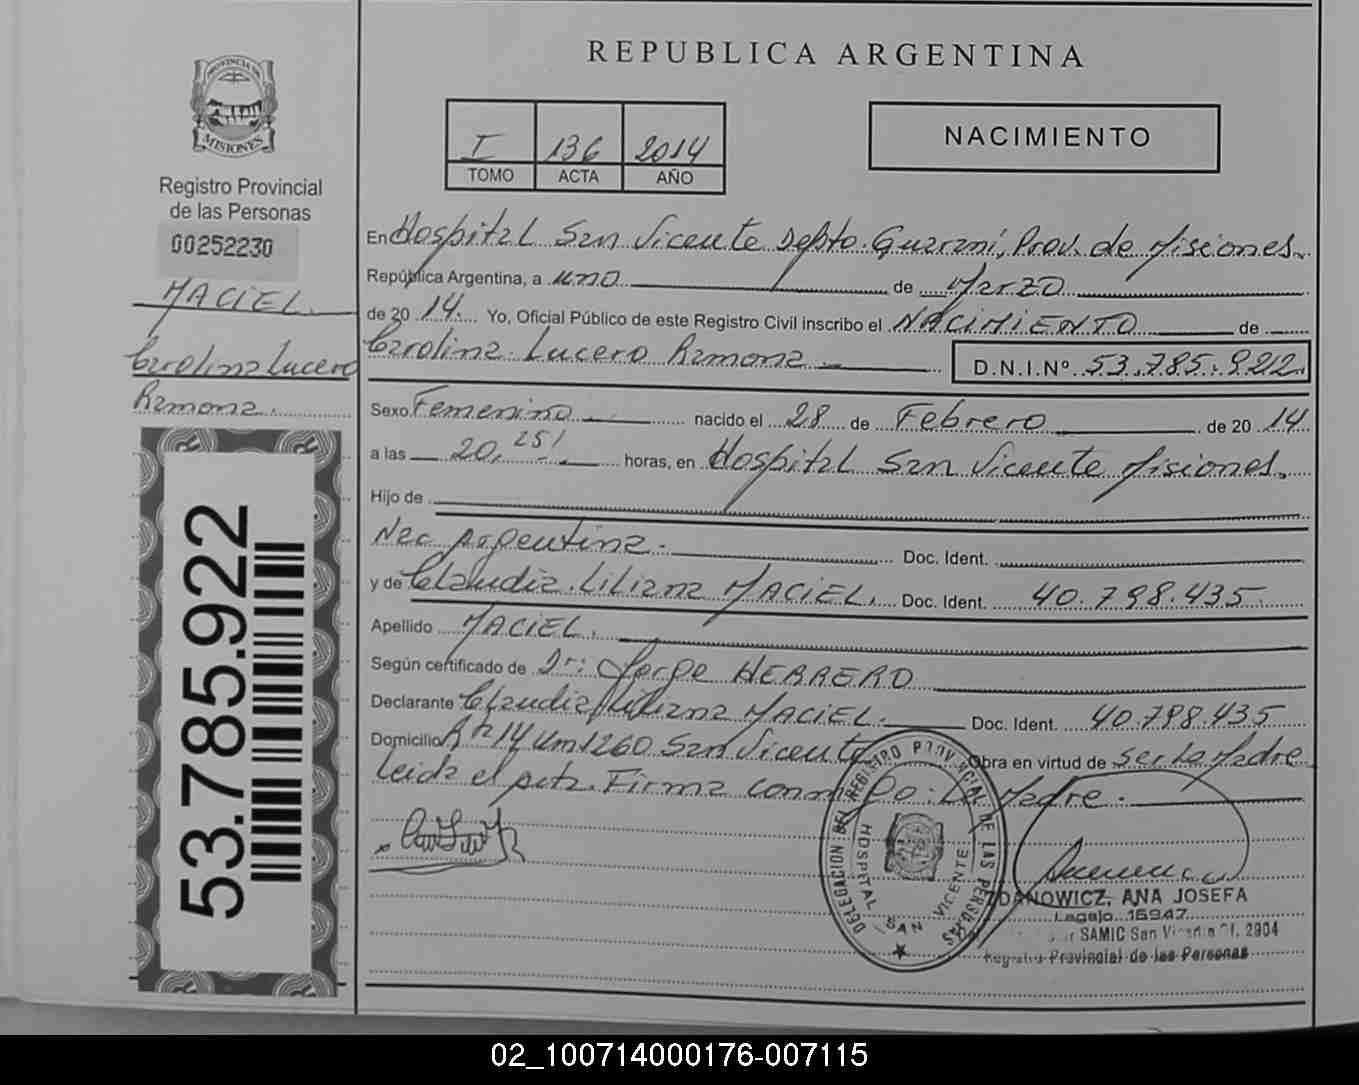 REPUBLICA ARGENTINA
PROVINCIA DE
MISIONES
Registro Provincial
de las Personas
00252230
MACIEL.
Carolina Lucero
Ramona
53.785.922
I 136 2014
TOMO ACTA AÑO
NACIMIENTO
En Hospital San Vicente Depto. Guaraní, Prov. de Misiones
República Argentina, a uno de Marzo
de 20 14. Yo, Oficial Público de este Registro Civil inscribo el NACIMIENTO de
Carolina Lucero Ramona D.N.I.Nº 53.785.922
Sexo Femenino nacido el 28 de Febrero de 20 14
a las 20,25 horas, en Hospital San Vicente Misiones.
Hijo de
Nac Argentina. Doc. Ident.
y de Claudia Liliana MACIEL. Doc. Ident. 40.798.435
Apellido MACIEL.
Según certificado de Dr: Jorge HERRERO
Declarante Claudia Liliana MACIEL. Doc. Ident. 40.798.435
Domicilio Rn 14 Km 1260 San Vicente Obra en virtud de ser La Madre
Leida el acta. Firma conmigo: La Madre.
DELEGACION DEL REGISTRO PROVINCIAL DE LAS PERSONAS
HOSPITAL SAN VICENTE
ZDANOWICZ, ANA JOSEFA
Legajo 15947
SAMIC San Vicente 2904
Registro Provincial de las Personas
02_100714000176-007115